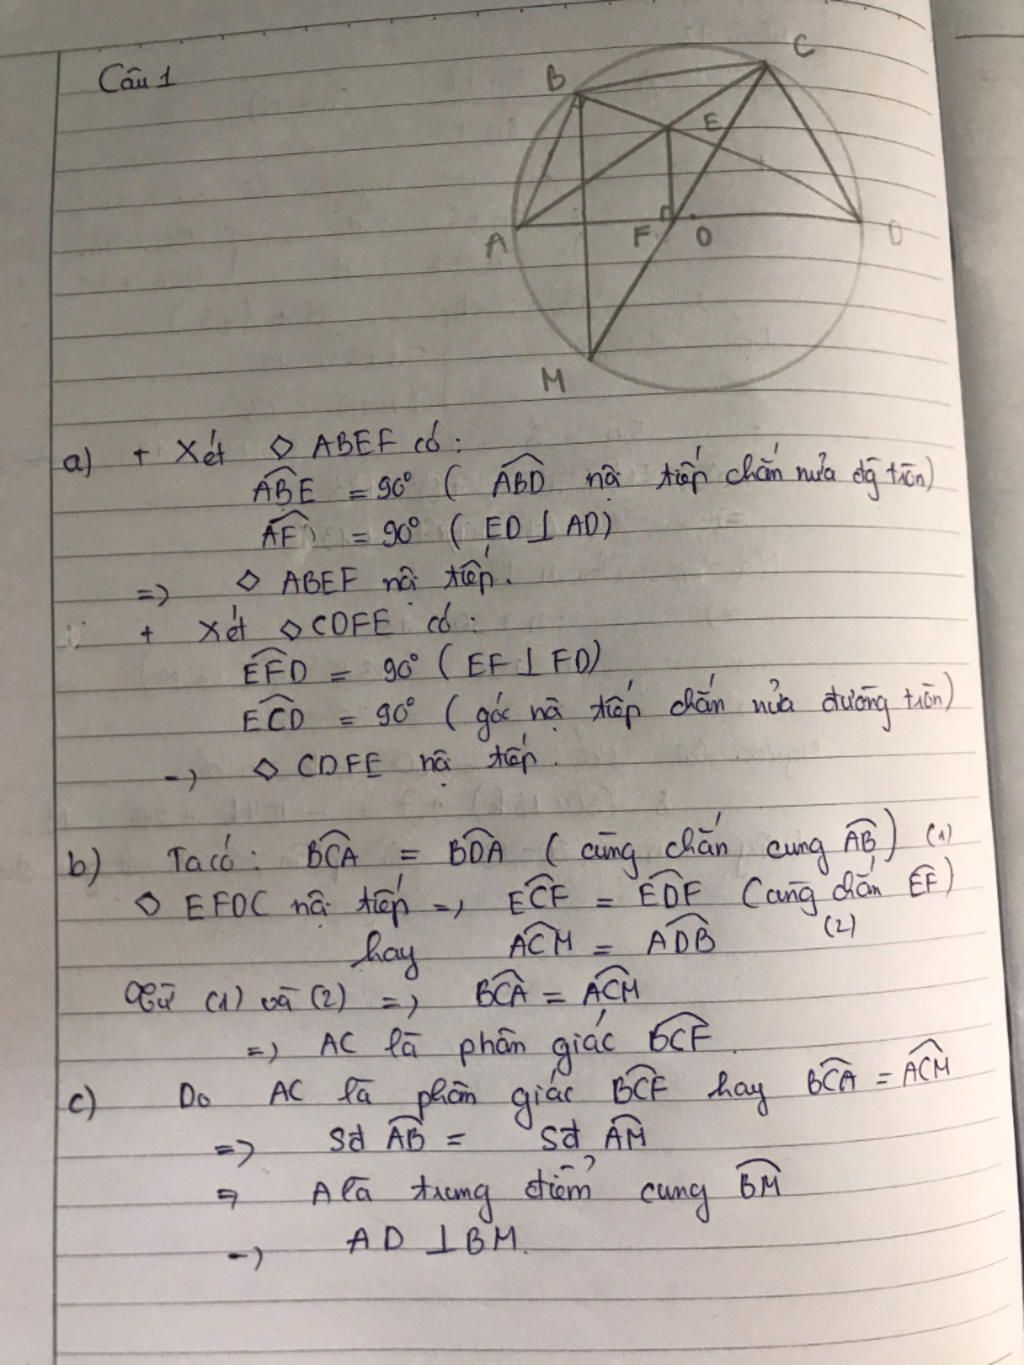 Câu 1
B
C
E
A
F
O
D
M
a) + Xét ◇ ABEF có:
ABE = 90° ( ABD nội tiếp chắn nửa đg tròn)
= 90° ( ED ⊥ AD)
=> ◇ ABEF nội tiếp.
+ Xét ◇ CDFE có:
EFD = 90° ( EF ⊥ FD)
ECD = 90° ( góc nội tiếp chắn nửa đường tròn)
=> ◇ CDFE nội tiếp.
b) Ta có: BCA = BDA ( cùng chắn cung AB ) (1)
◇ EFDC nội tiếp => ECF = EDF (cùng chắn EF)
hay ACM = ADB (2)
Từ (1) và (2) => BCA = ACM
=> AC là phân giác BCF.
c) Do AC là phân giác BCF hay BCA = ACM
=> Sđ AB = Sđ AM
=> A là trung điểm cung BM
=> AD ⊥ BM.